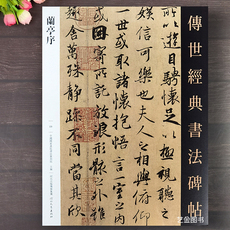 傳世經典書法碑帖
所以遊目騁懷足以極視聽之
娛信可樂也夫人之相與俯仰
一世或取諸懷抱悟言一室之內
或因寄所託放浪形骸之外雖
趣舍萬殊靜躁不同當其欣
蘭亭序
艺金图书